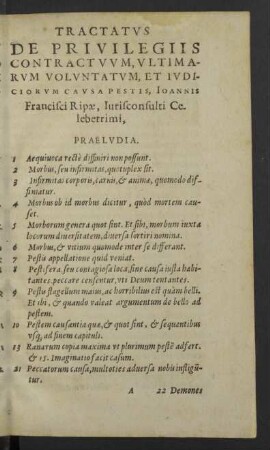 TRACTATVS
DE PRIVILEGIIS
CONTRACTVVM, VLTIMA-
RVM VOLVNTATVM, ET IVDI-
CIORVM CAVSA PESTIS, IOANNIS
Francisci Ripæ, Iurisconsulti Ce-
leberrimi,
PRAELVDIA.
1 Aequiuoca rectè diffiniri non possunt.
2 Morbus, seu infirmitas, quotuplex sit.
3 Infirmitas corporis, carnis, & animæ, quomodo dif-
finiatur.
4 Morbus ob id morbus dicitur, quòd mortem cau-
set.
5 Morborum genera quot sint. Et sibi, morbum iuxta
locorum diuersitatem, diuersa sortiri nomina.
6 Morbus, & vitium quomodo inter se differant.
7 Pestis appellatione quid veniat.
8 Pestifera, seu contagiosa loca, sine causa iusta habi-
tantes peccare censentur, vti Deum tentantes.
9 Pestis flagellum maius, ac horribilius est quàm belli.
Et ibi, & quando valeat argumentum de bello ad
pestem.
10 Pestem causantia quæ, & quot sint, & sequentibus
vsq; ad finem capituli.
13 Ranarum copia maxima vt plurimum pestē adfert.
& 15. Imaginatio facit casum.
21 Peccatorum causa, multoties aduersa nobis instigū-
tur.
A 22 Demones